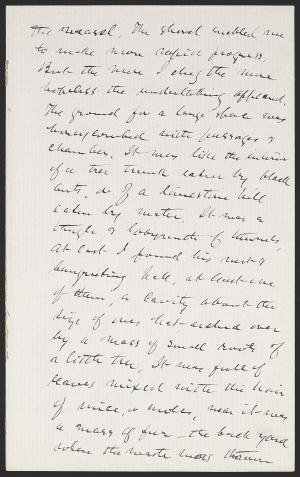 the weasel. The shovel enabled me
to make more rapid progress.
But the more I dug the more
hopeless the undertaking appeared.
The ground for a large space was
honeycombed with passages &
chambers. It was like the interior
of a tree trunk eaten by black
ants, or of a limestone hill
eaten by water. It was a
tangle & labyrinth of tunnels,
at last I found his nest &
banqueting hall, at least one
of them, a cavity about the
size of ones hat-arched over
by a mass of small roots of
a little tree. It was full of
leaves mixed with the hair
of mice, & moles, near it was
a mass of fur — the back yard
where the waste was thrown